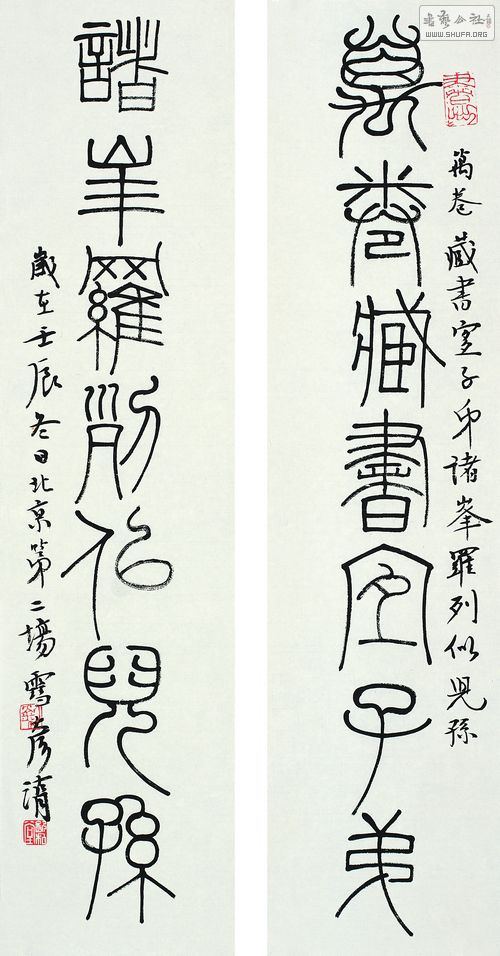 书艺公社
WWW.SHUFA.ORG
萬卷藏書宜子弟諸峯羅列似兒孫
萬卷藏書宜子弟
諸峯羅列似兒孫
歲在壬辰冬日北京第二場雪彥